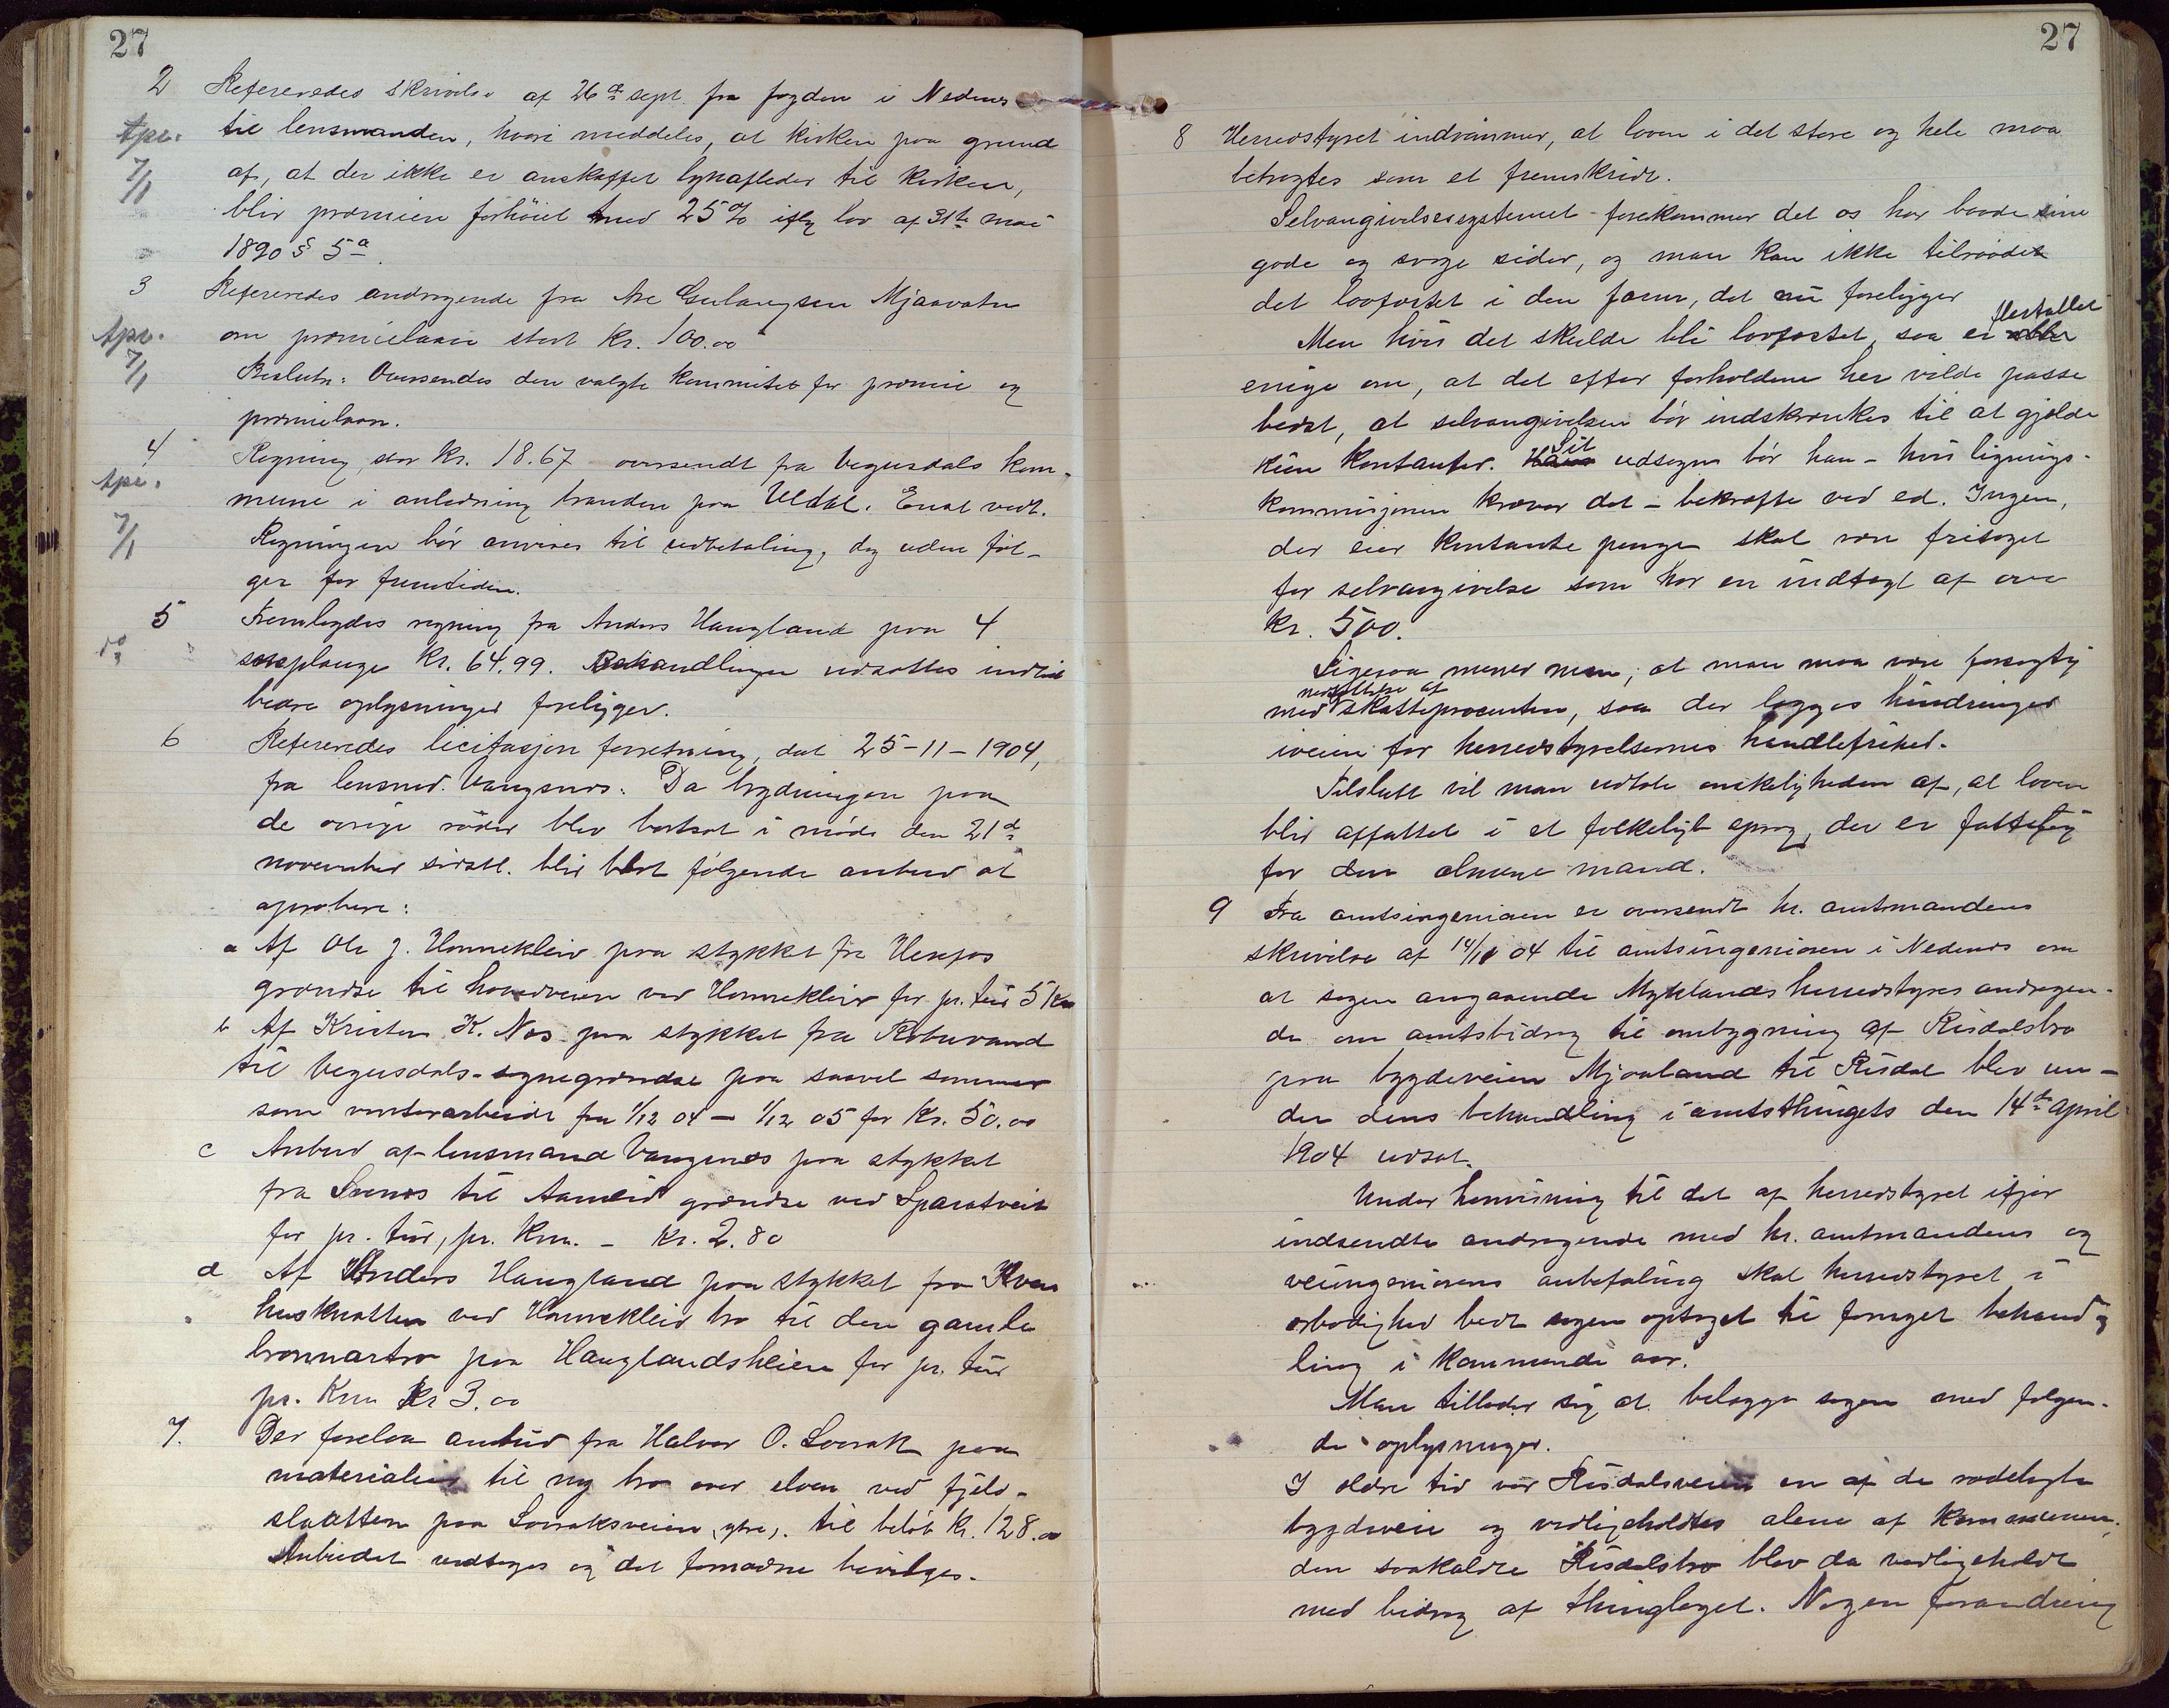 27
2 Refereredes skrivelse af 26de sept. fra fogden i Nedenes
Apr. til lensmanden, hvori meddeles, at kirken paa grund
7/1 af, at der ikke er anskaffet lynafleder til kirken,
blir præmien forhöiet med 25% iflg lov af 31te mai
1890 § 5a.
3 Refereredes andragende fra Are Gulaugsen Mjaavatn
Apr. om præmielaan stort kr. 100.00
7/1 Beslutn: Oversendes den valgte kommitee for præmie og
præmielaan.
4 Regning stor kr. 18.67 oversendt fra Vegusdals kom-
Apr. mune i anledning branden paa Uldal. Enst. vedt.
7/1 Regningen bör anvises til udbetaling, dog uden föl-
ger for fremtiden.
5 Fremlagdes regning fra Anders Haugland paa 4
do sneplauge kr. 64.99. Behandlingen udsættes indtil
bedre oplysninger foreligger.
6 Refereredes licitasjons forretning, dat 25-11-1904,
fra lensmd. Vangsnes. Da brydningen paa
de övrige röder blev bortsat i möde den 21de
november sidstl. blir blot fölgende anbud at
aprobere:
a Af Ole J. Hannekleiv paa stykket fra Herefos
grændse til hovedveien ved Hannekleiv for pr. tur 5 kr
b Af Kristen K. Næs paa stykket fra Robuvand
til Vegusdals sognegrændse paa saavel sommer
som vinterarbeide fra 1/12 04 - 1/12 05 for kr. 50.00
c Anbud af lensmand Vangsnes paa stykket
fra Svenes til Aamli grændse ved Sparatveit
for pr. tur, pr. km. - kr. 2.80
d Af Anders Haugland paa stykket fra Kvern
husknatten ved Hannekleiv bro til den gamle
paa Hauglandsheien for pr. tur
pr. Km kr 3.00
7. Der forelaa anbud fra Halvor O. Lovrak paa
materialier til ny bro over elven ved fjeld-
slaatten paa Lovraksveien, ytre, til beløb kr. 128.00
Anbudet vedtages og det fornødne bevilges.
27
8 Herredstyret indrömmer, at loven i det store og hele maa
betragtes som et fremskridt.
Selvangivelsessystemet forekommer det os har baade sine
gode og svage sider, og man kan ikke tilraade
det lovfæstet i den form, det nu foreligger
flertallet
Men hvis det skulde bli lovfæstet, saa er alle
enige om, at det efter forholdene her vilde passe
bedst, at selvangivelsen bör indskrænkes til at gjælde
Sit
kun kontanter. Hans udsagn bör han - hvis lignings-
kommisjonen kræver det - bekræfte ved ed. Ingen,
der eier kontante penge skal være fritaget
for selvangivelse som har en indtægt af over
kr. 500.
Ligesaa mener man, at man maa være forsigtig
nedsættelse af
med skatteprocenten, saa der lægges hindringer
iveien for herredstyrelsernes handlefrihed.
Tilslutt vil man udtale önskeligheden af, at loven
blir affattet i et folkeligt sprog, der er fattelig
for den almene mand.
9 Fra amtsingeniøren er oversendt hr. amtmandens
skrivelse af 14/11 04 til amtsingeniøren i Nedenes om
at sagen angaaende Myklands herredstyres andragen-
de om amtsbidrag til ombygning af Risdalsbro
paa bygdeveien Mjaaland til Risdal blev un-
der dens behandling i amtsthingets den 14de april
1904 udsat.
Under henvisning til det af herredstyret ifjor
indsendte andragende med hr. amtmandens og
veiingeniørens anbefaling skal herredstyret i
ærbødighed bede sagen optaget til fornyet behand
ling i kommende aar.
Man tillader sig at belægge sagen med følgen-
de oplysninger.
I ældre tid var Risdalsveien en af de rodelagte
bygdeveie og vedligeholdtes alene af kommunen,
den saakaldte Risdalsbro blev da vedligeholdt
med bidrag af thinglaget. Nogen forandring